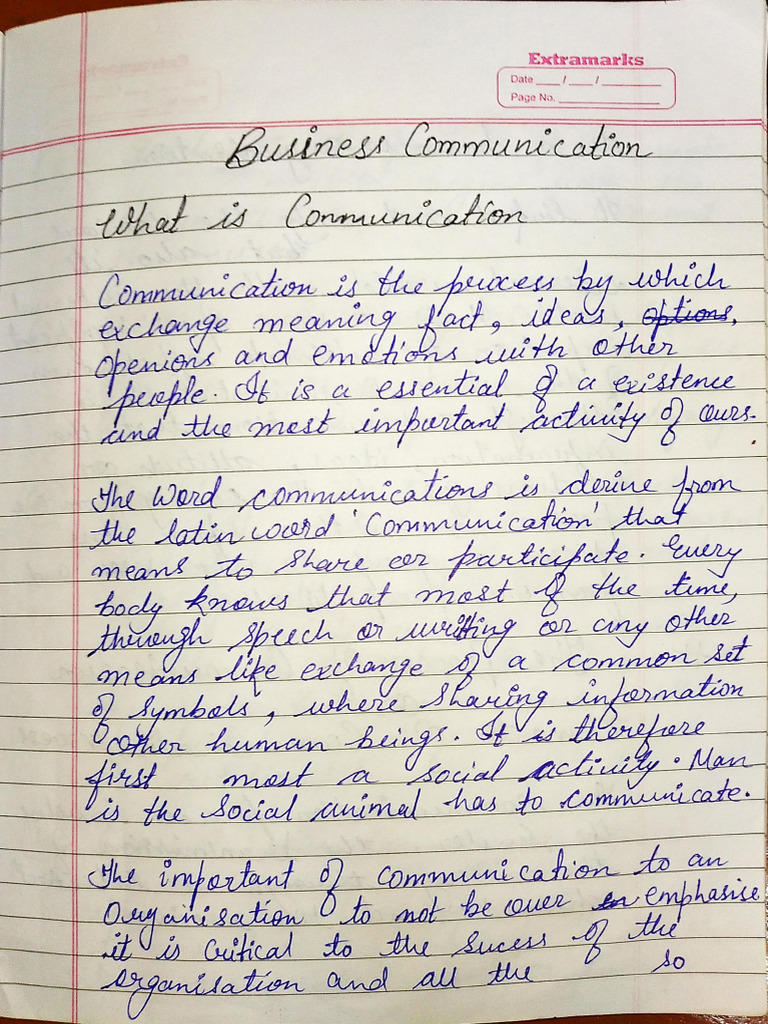 Extramarks
Date ___/___/______
Page No. ____________
Business Communication
What is Communication
Communication is the process by which
exchange meaning fact, ideas, options,
openions and emotions with other
people. It is a essential of a existence
and the most important activity of ours.
The word communications is derine from
the latin word 'Communication' that
means to share or participate. Every
body knows that most of the time,
through speech or writting or any other
means like exchange of a common set
of symbols, where sharing information
other human beings. It is therefore
first most a social activity. Man
is the social animal has to communicate.
The important of communication to an
Organisation to not be over en emphasise
it is critical to the sucess of the
organisation and all the so